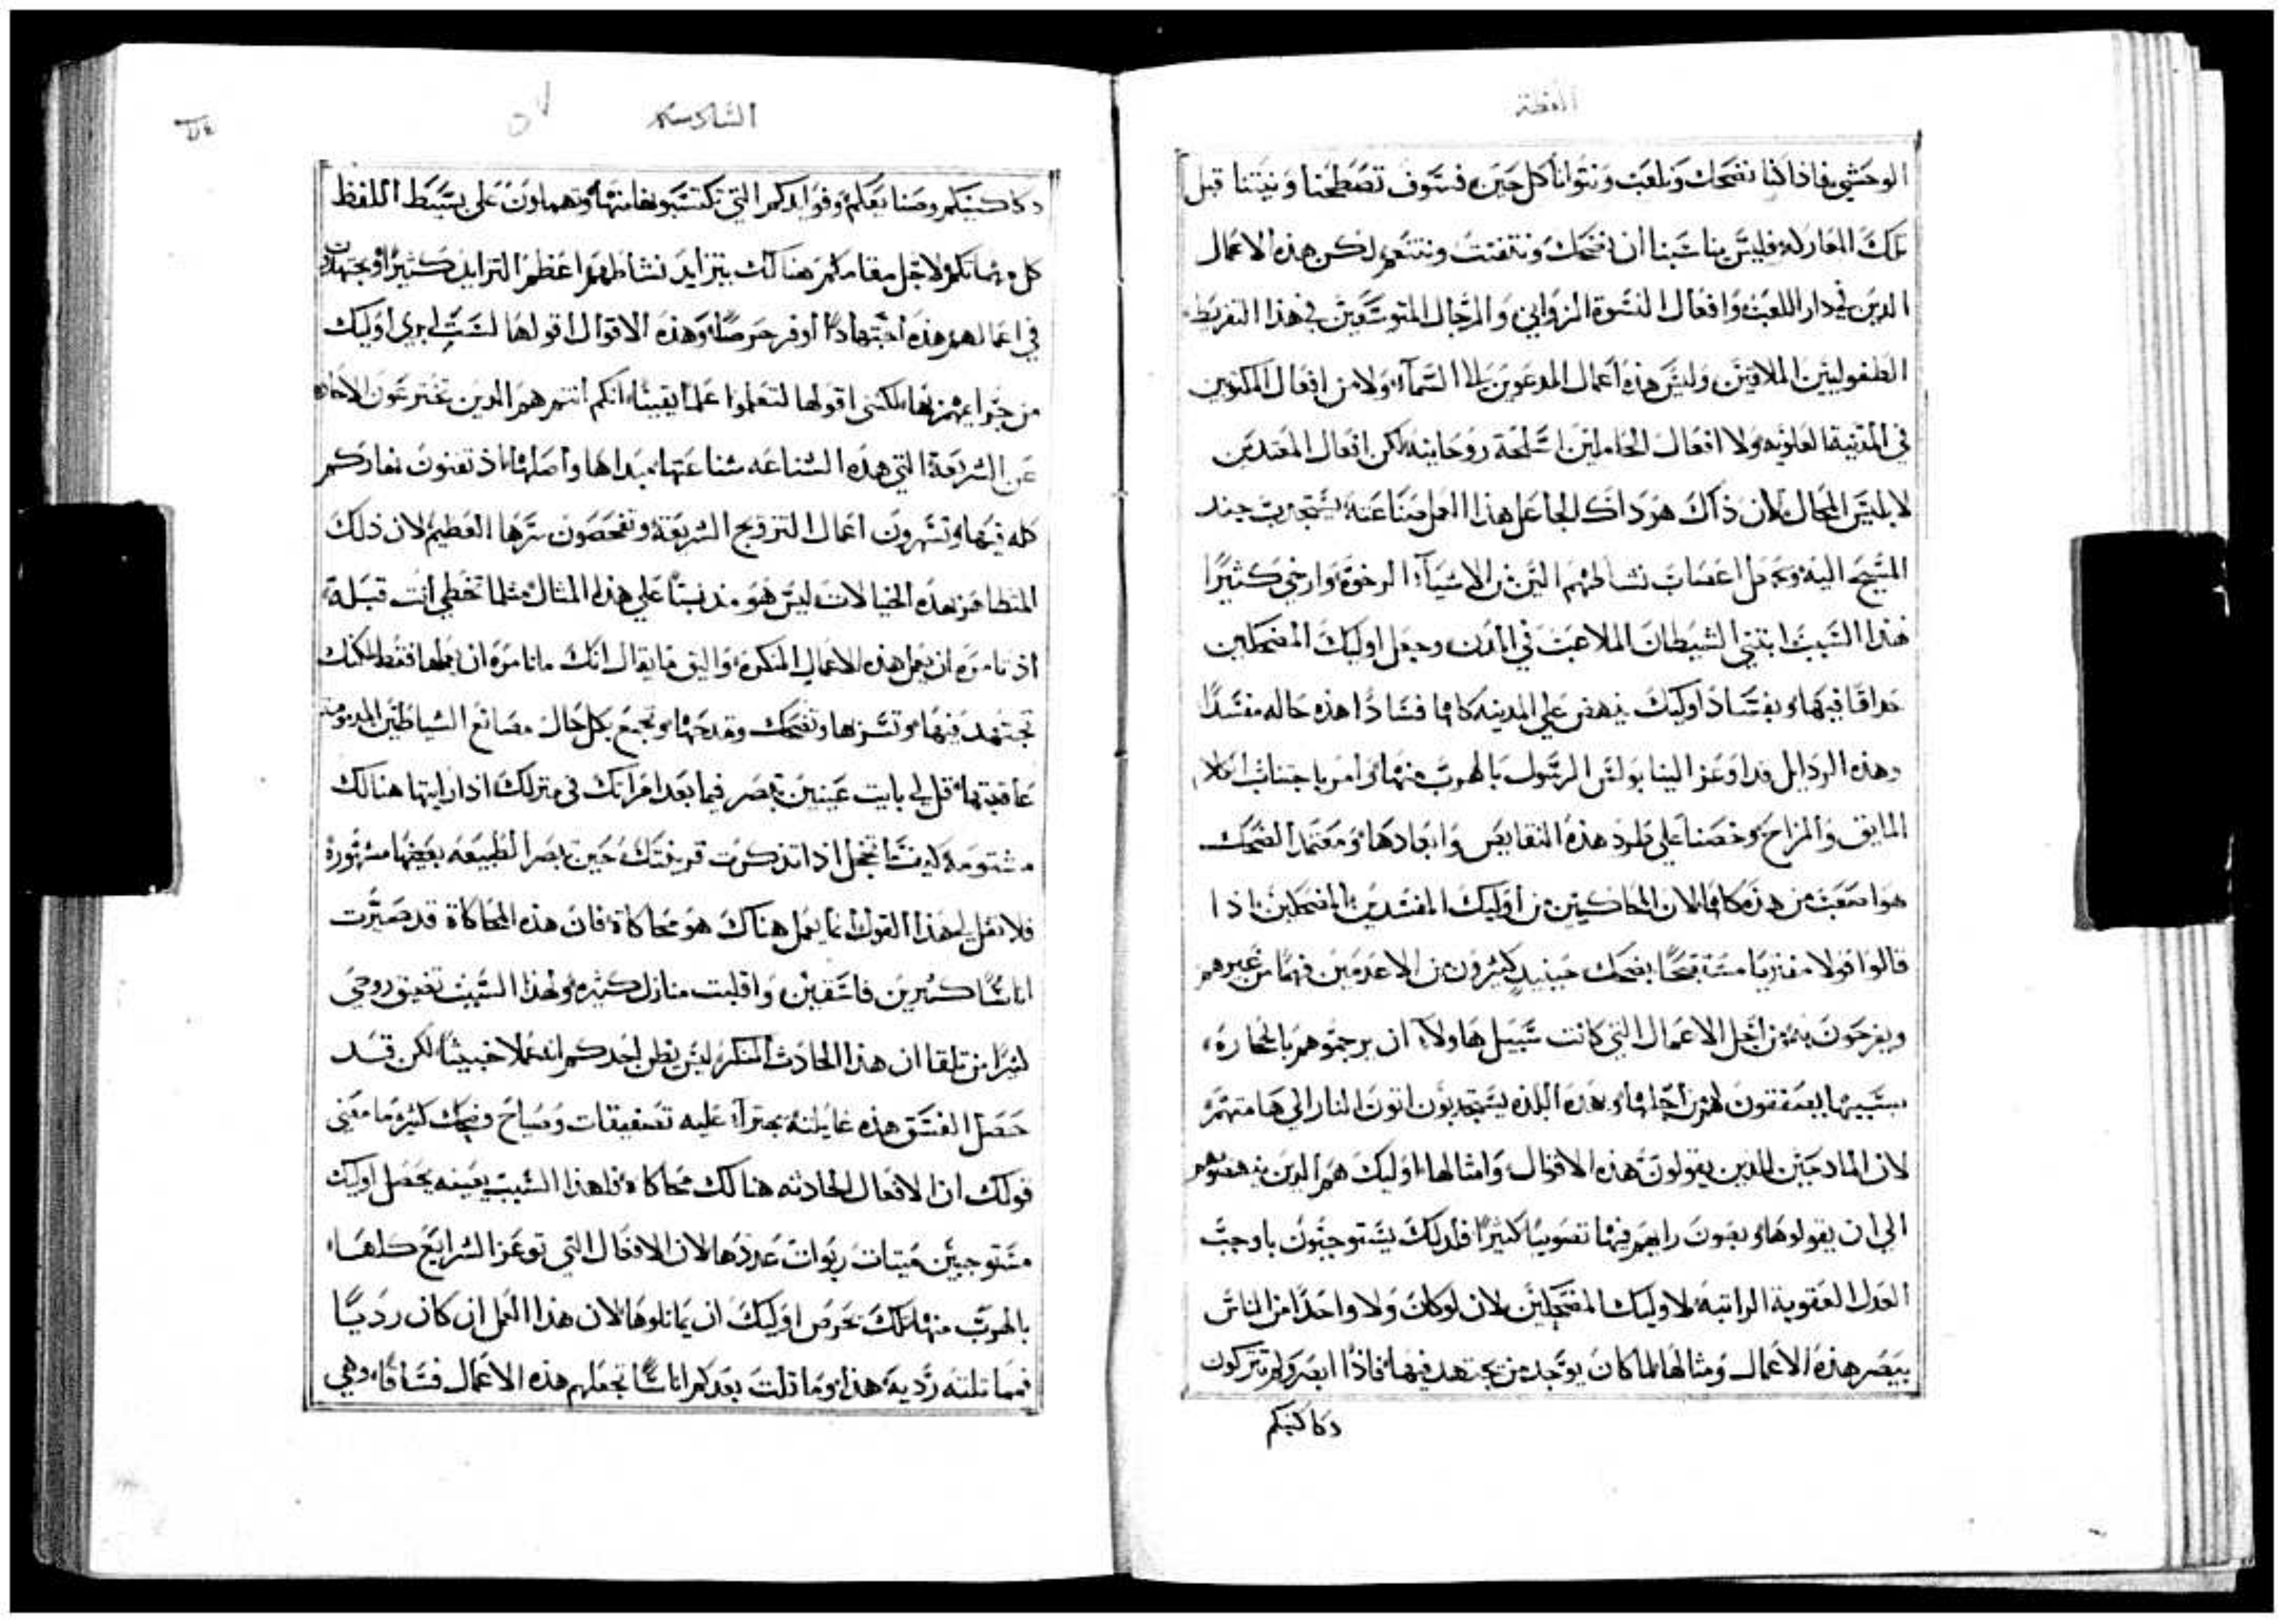 العظة
الوحشي فاذا كنا نضحك ونلعب ونتوانا كل حين فسوف تصطحنا ونيتنا قبل
تلك المعارك فليس يناسبنا ان نضحك ونتفنت ونتنعم لكن هذه الاعمال
الدين في دار اللعب وافعال النسوة الزواني والرجال المتوسعين في هذا التفريط
الطفوليين الملاقين وليس هذه اعمال المدعوين الى السماء ولا من افعال المكتوبين
في المدينة العلوية ولا افعال الحاملين اسلحة روحانية لكن افعال المعتدين
لابليس المحال لان ذاك هو ذاك الجاعل هذا الفعل صناعته يستجرب جند
المسيح اليه ويجعل اعصاب نشاطهم الين من الاشياء الرخوة وارخى كثيرا
هذا السبب ابتنى الشيطان الملاعب في المدن وجعل اوليك المضحكين
حداقا فيها وبفساد اوليك ينهض على المدينة كافا فسادا هذه حاله مفسدا
وهذه الردايل قد اوعز الينا بولس الرسول بالهرب منها وامر باجتناب الكلام
المايق والمزاح وحضنا على طرد هذه النقايص وابعادها ومعتمد الضحك
هو اصعب من هذه كافا لان المحاكين من اوليك المفسدين المضحكين اذا
قالوا قولا مفتريا مستقبحا يضحك حينيد كثيرون من الاعدمين فهما من غيرهم
ويفرحون به من اجل الاعمال التي كانت سبيل هاولاء ان يرجموهم بالحجارة
بسببها يصفقون لهم من اجلها وبهذه اللذة يستجدبون اتون النار الى هامتهم
لان المادحين للدين يقولون هذه الاقوال وامثالها اوليك هم الدين ينهضوهم
الى ان يقولوها ويصون رايهم فيها تصويبا كثيرا فلدلك يستوجبون باوجب
العدل العقوبة الراتبة لاوليك المضحكين لان لو كان ولا واحدا من الناس
يبصر هذه الاعمال ومثالها لما كان يوجد من يجتهد فيها فاذا ابصروكم تتركون
دكاكينكم
السادسه
دكاكينكم وصنايعكم وفوايدكم التي تكتسبونها منها وتهماون على بسيط اللفظ
كل مهماتكم لاجل مقامكم هنالك يتزايد نشاطهم اعظم التزايد كثيرا ويجتهدون
في اعمالهم هذه اجتهادا اوفر حرصا وهذه الاقوال اقولها لست ابري اوليك
من جرايمهم بها لكنني اقولها لتعلموا علما يقينا انكم انتم هم الدين تخترعون الاحاد
عن الشريعة التي هذه الشناعه شناعتها مبداها واصلها اذ تفنون نهاركم
كله فيها وتشهرون اعمال التزويج الشريفة وتفحصون سرها العظيم لان ذلك
المتظاهر بهذه الخيالات ليس هو مذنبا على هذا المثال مثلما تخطي انت قبله
اذ تامره ان يعمل هذه الاعمال المنكره واليق ما يقال انك ما تامره ان يعملها فقط لكنك
تجتهد فيها وتسر بها وتضحك وتمدحها وتجمع بكل حال مصانع الشياطين المذمومة
عاقبتها قل لي بايت عينين تبصر فيما بعد امراتك في منزلك اذا رايتها هنالك
مشتومة كيف ما تخجل اذا تذكرت قرينتك حين تبصر الطبيعه بعينها مشهورة
فلا تقل لي هذا القول انما يعمل هناك هو محاكاة فان هذه المحاكاة قد صيرت
اناسا كثيرين فاسقين واقلبت منازل كثيره ولهذا السبب تضيق روحي
كثيرا من تلقا ان هذا الحادث المنكر ليس يظن احدكم انه عملا خبيثا لكن قد
حصل الفسق هذه غايلته يجترا عليه تصفيقات وصياح وضحك كثير وما معنى
قولك ان الافعال الحادثه هنالك محاكاه فلهذا السبب بعينه يحصل اوليك
مستوجبين ميتات ربوات عددها لان الافعال التي توعز الشرايع كلها
بالهرب منها تلك يحرص اوليك ان يماثلوها لان هذا العمل ان كان رديا
فمماثلته ردية هذا وما قلت بعد كم اناسا تجعلهم هذه الاعمال فساقا وهي